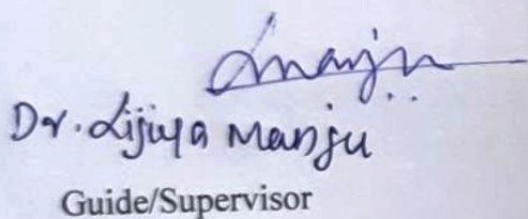 Manju
Dr. Lijiya Manju
Guide/Supervisor